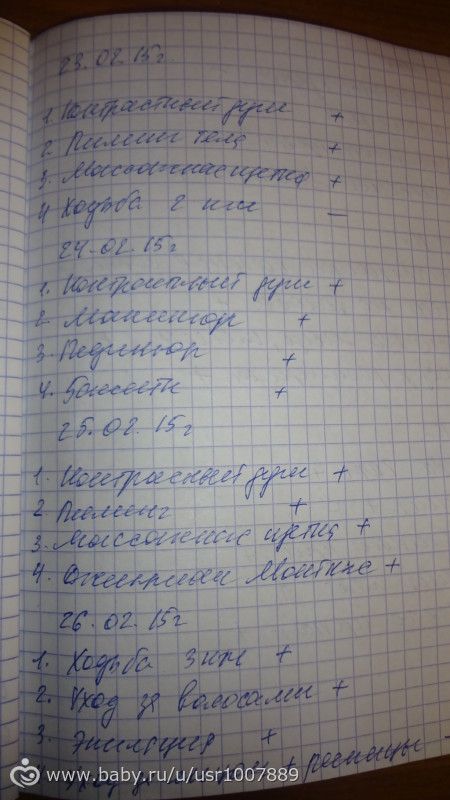 23.02.15г.
1. Контрастный душ +
2. Пилинг тела +
3. Массажная щетка +
4 Ходьба 2 км —
24.02.15г
1. Контрастный душ +
2. Маникюр +
3. Педикюр +
4. +
25.02.15г
1. Контрасный душ +
2 Пилинг +
3. Массажная щетка +
4. +
26.02.15г
1. Ходьба 3 км +
2. Уход за волосами +
3. Эпиляция +
Уход за + ресницы -
www.baby.ru/u/usr1007889